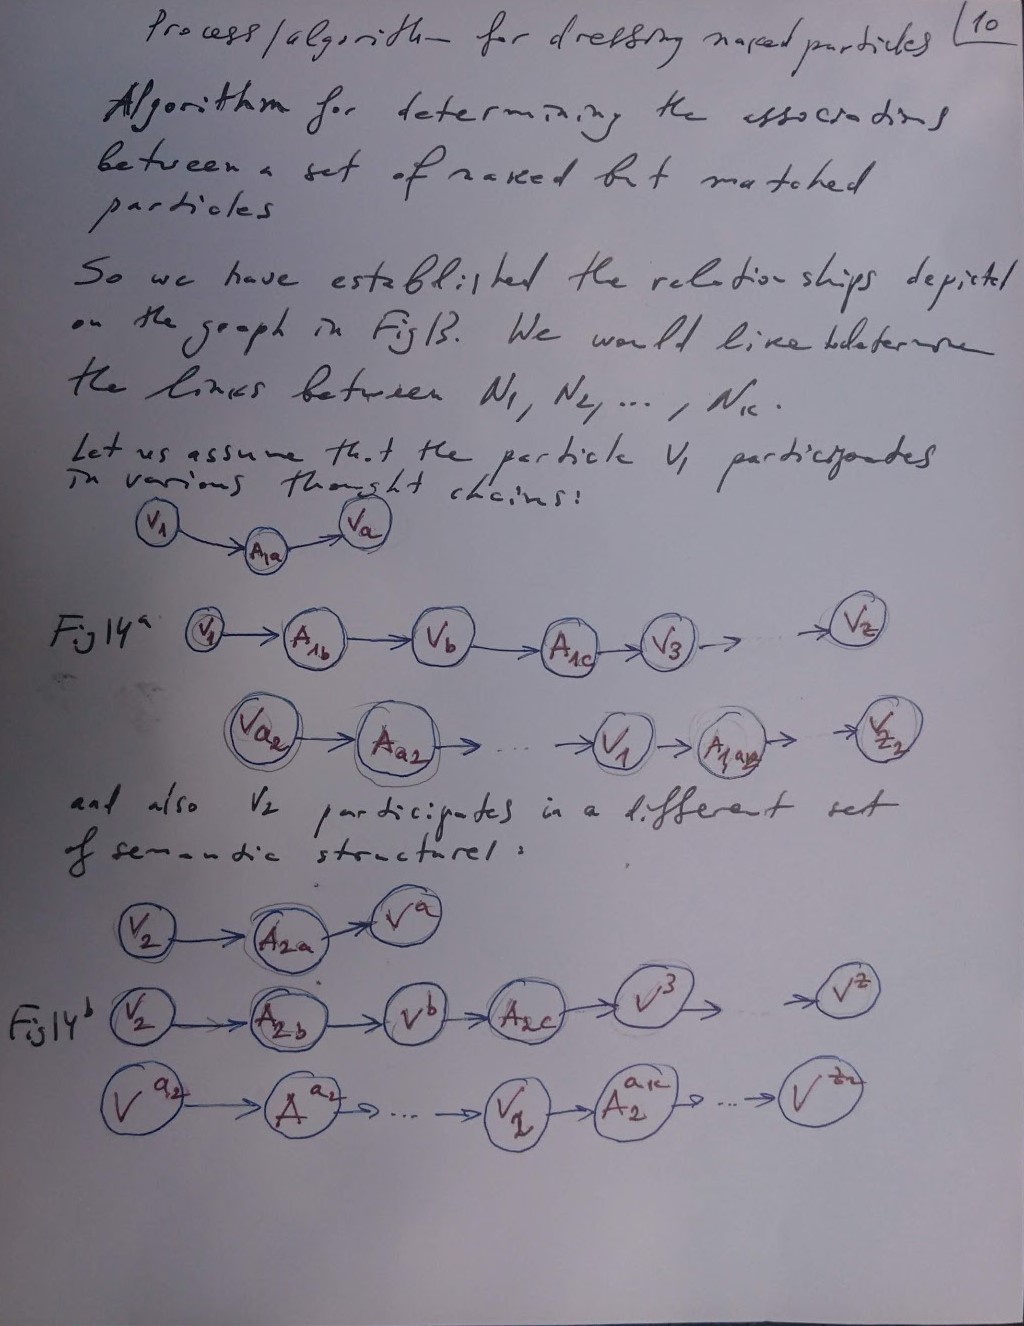 Process/algorithm for dressing naked particles 10
Algorithm for determining the associations
between a set of naked but matched
particles
So we have established the relationships depicted
on the graph in Fig13. We would like to determine
the links between N1, N2, ..., Nk.
Let us assume that the particle V1 participates
in various thought chains:
V1 → A1a → Va
Fig14a V1 → A1b → Vb → A1c → V3 → ... → Vz
Va2 → Aa2 → ... → V1 → → Vz2
and also V2 participates in a different set
of semantic structures:
V2 → A2a → V^a
Fig14b V2 → A2b → V^b → A2c → V^3 → ... → V^z
V^a2 → A^a2 → ... → V2 → A2^ak → ... → V^z2